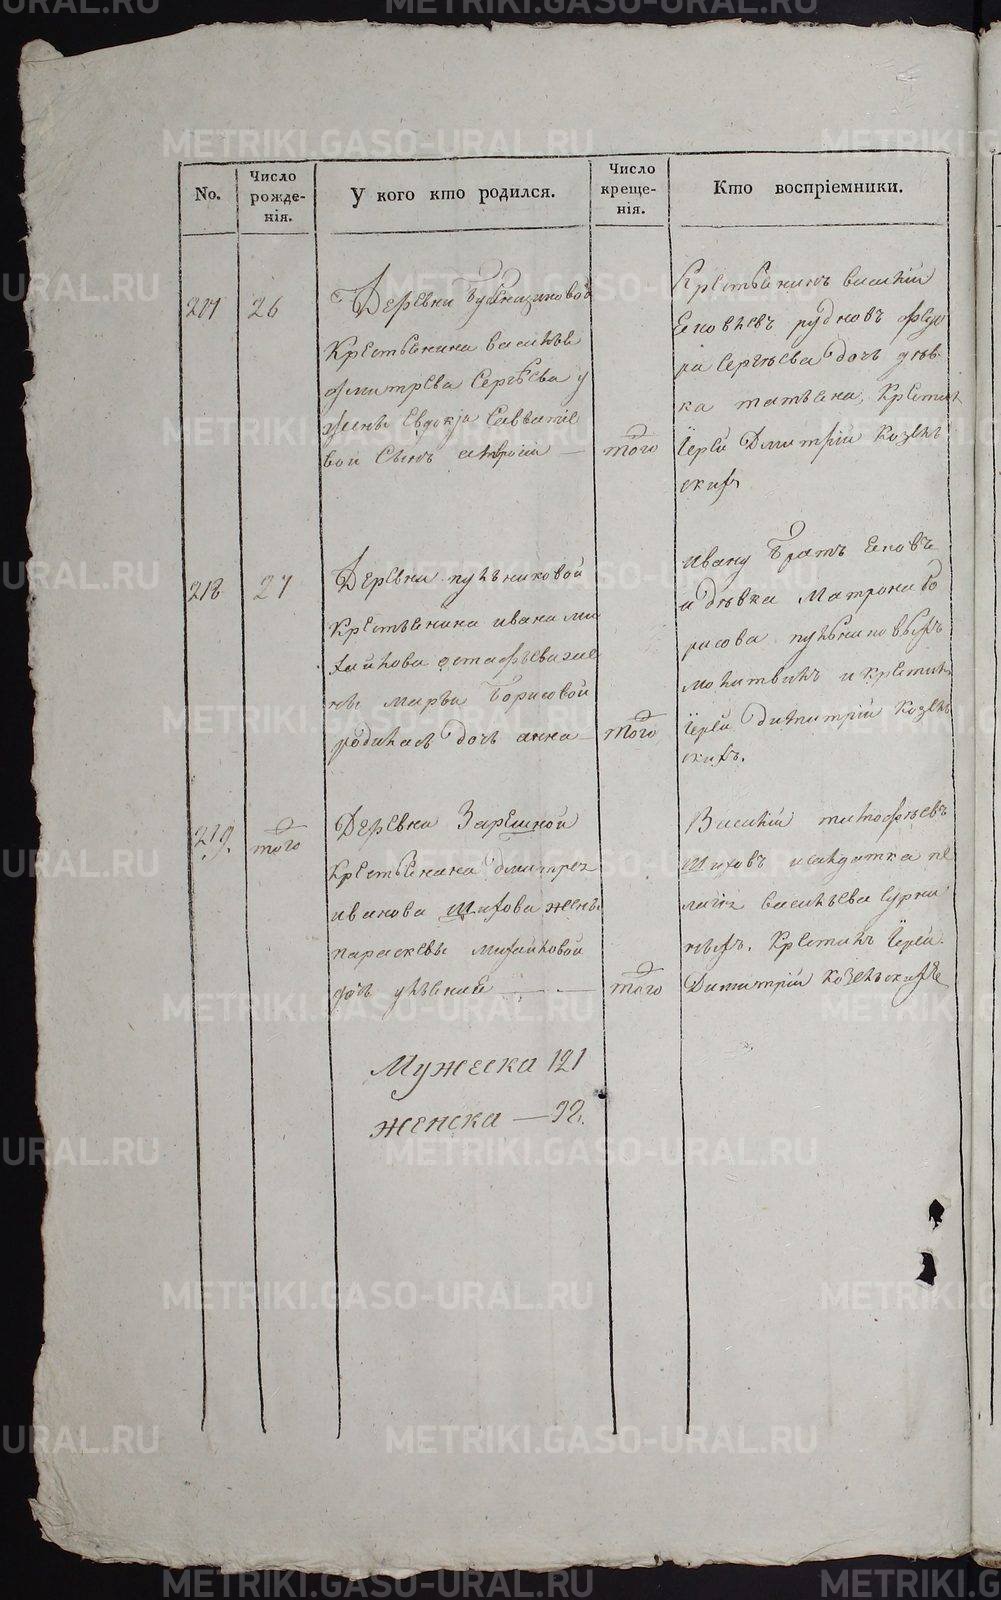 No.
Число рожде-нія.
У кого кто родился.
Число креще-нія.
Кто воспріемники.
217
26
Деревни
Крестьянина василья
дмитрева Сергѣева у
жены Евдокіи Савватіе
вой Сынъ
того
Крестьянинъ василій
рудновъ
ра Сергѣева дочь дѣв
ка татьяна, Крестилъ
Іерей Дмитрій Козель
скихъ
218
27
Деревни
Крестьянина ивана ми
хайлова остафьева же
ны марьи Борисовой
родилась дочь анна
того
ивану Братъ
и дѣвка Матрона Бо
рисова
молитвилъ и крестилъ
Іерей Димитрій Козель
скихъ.
219.
того
Деревни Зарешной
Крестьянина дмитрея
иванова Шихова жены
параскевы михайловой
дочь
того
Василій тимофѣевъ
Шиховъ и салдатка пе
лагія васильева Сурни
ныхъ. Крестилъ Іерей
Димитрій Козельскихъ
Мужеска 121
женска — 92.
METRIKI.GASO-URAL.RU